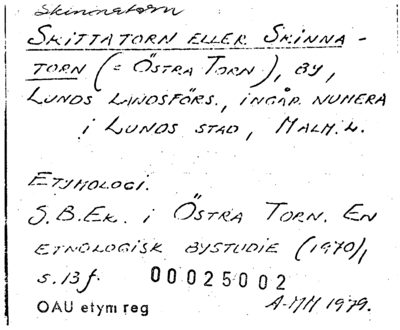 Skinnatorn
SKITTATORN ELLER SKINNA-
TORN (= ÖSTRA TORN), BY,
LUNDS LANDSFÖRS., INGÅR NUMERA
I LUNDS STAD, MALM. L.
ETYMOLOGI.
S.B.EK. I ÖSTRA TORN. EN
ETNOLOGISK BYSTUDIE (1970),
S. 13 f. 00025002
OAU etym reg A-MH 1979.